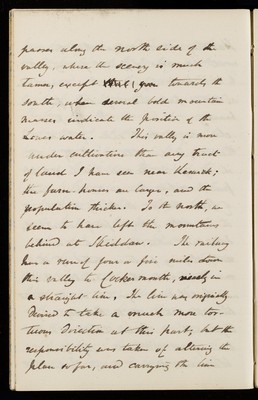 passes along the north side of the
valley, where the scenery is much
tamer, except towards the
south, where several bold mountain
masses indicate the position of the
Lowes water. This valley is more
under cultivation than any tract
of land I have seen near Keswick;
the farm-houses are larger, and the
population thicker. To the north, we
seem to have left the mountains
behind at Skiddaw. The railway
has a run of four or five miles down
this valley to Cockermouth, nearly in
a straight line. The line was originally
desired to take a much more tor-
tuous direction at this part; but the
responsibility was taken of altering the
plan so far, and carrying the line